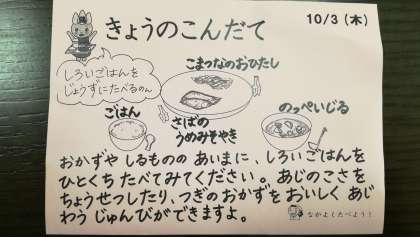 きょうのこんだて
10/3 (木)
しろいごはんを
じょうずにたべるのん
こまつなのおひたし
ごはん
さばの
うめみそやき
のっぺいじる
おかずや しるものの あいまに、しろいごはんを
ひとくち たべてみてください。あじのこさを
ちょうせつしたり、つぎの おかずを おいしく あじ
わう じゅんびができますよ。
なかよくたべよう!